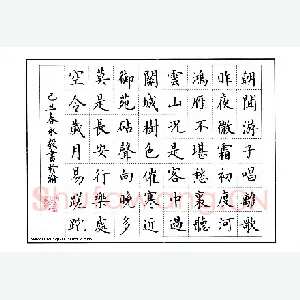 朝聞游子唱離歌
昨夜微霜初度河
鴻雁不堪愁裏聽
雲山況是客中過
關城樹色催寒近
御苑砧聲向晚多
莫是長安行樂處
空令歲月易蹉跎
己丑春永毅書於